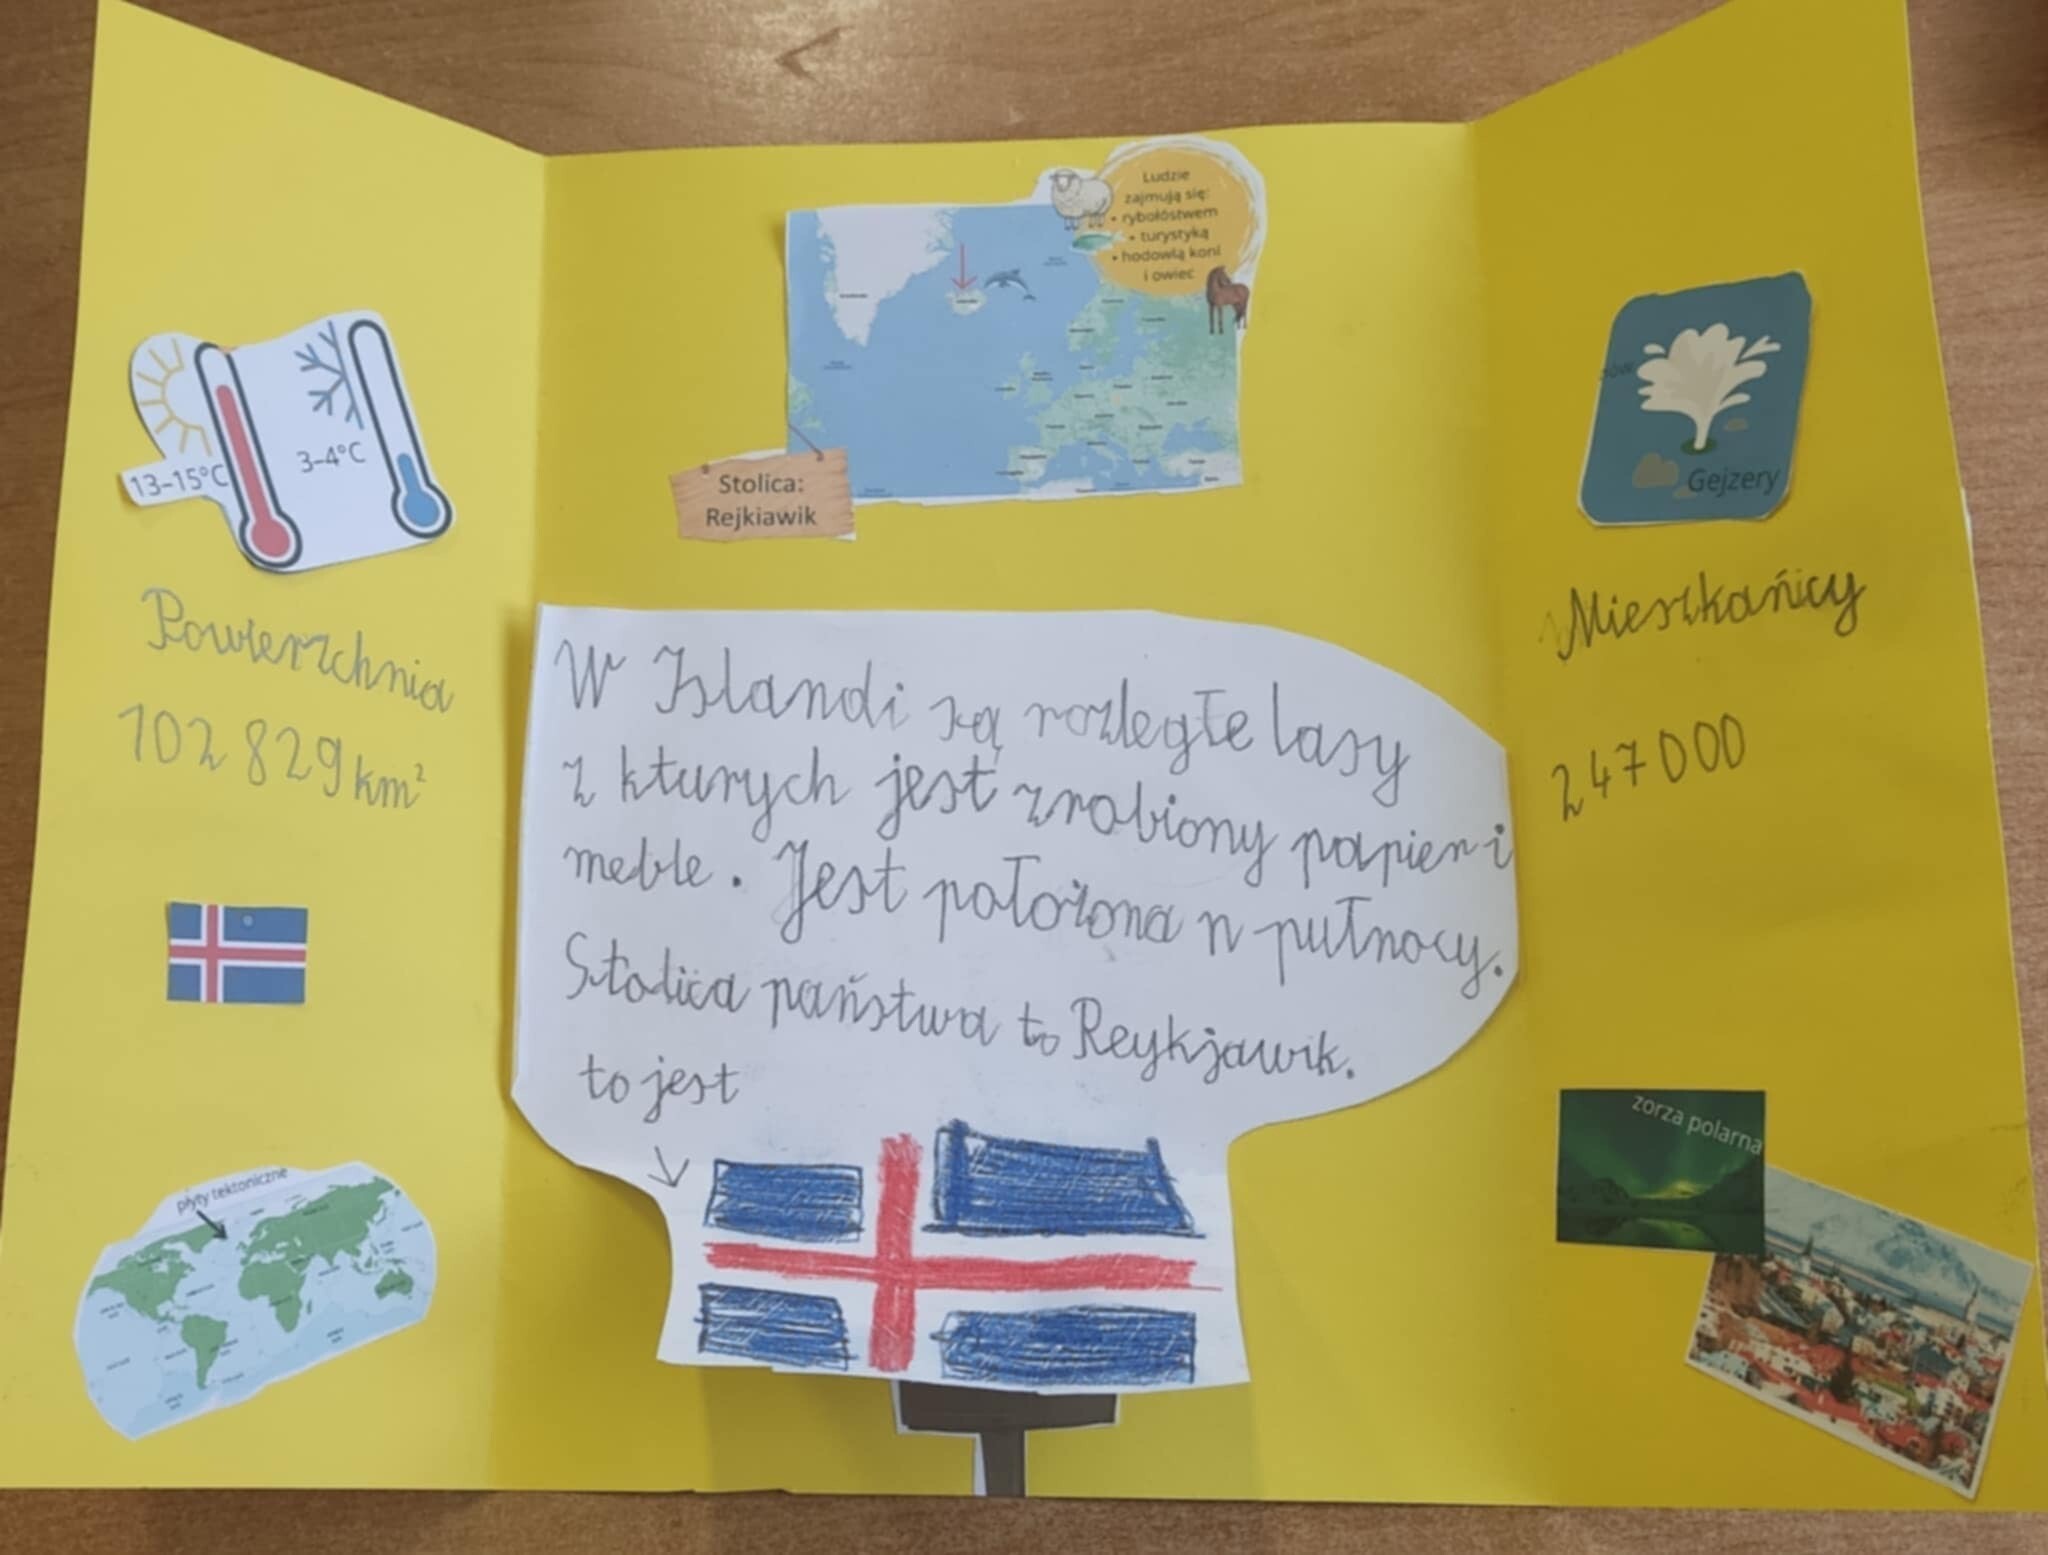 13–15°C
3–4°C
Powierzchnia
102 829 km²
płyty tektoniczne
Ludzie
zajmują się:
• rybołóstwem
• turystyką
• hodowlą koni
i owiec
Stolica:
Rejkiawik
W Islandi są rozległe lasy
z kturych jest zrobiony papier i
meble. Jest położona n pułnocy.
Stolica państwa to Reykjawik.
to jest
Gejzery
Mieszkańicy
247000
zorza polarna